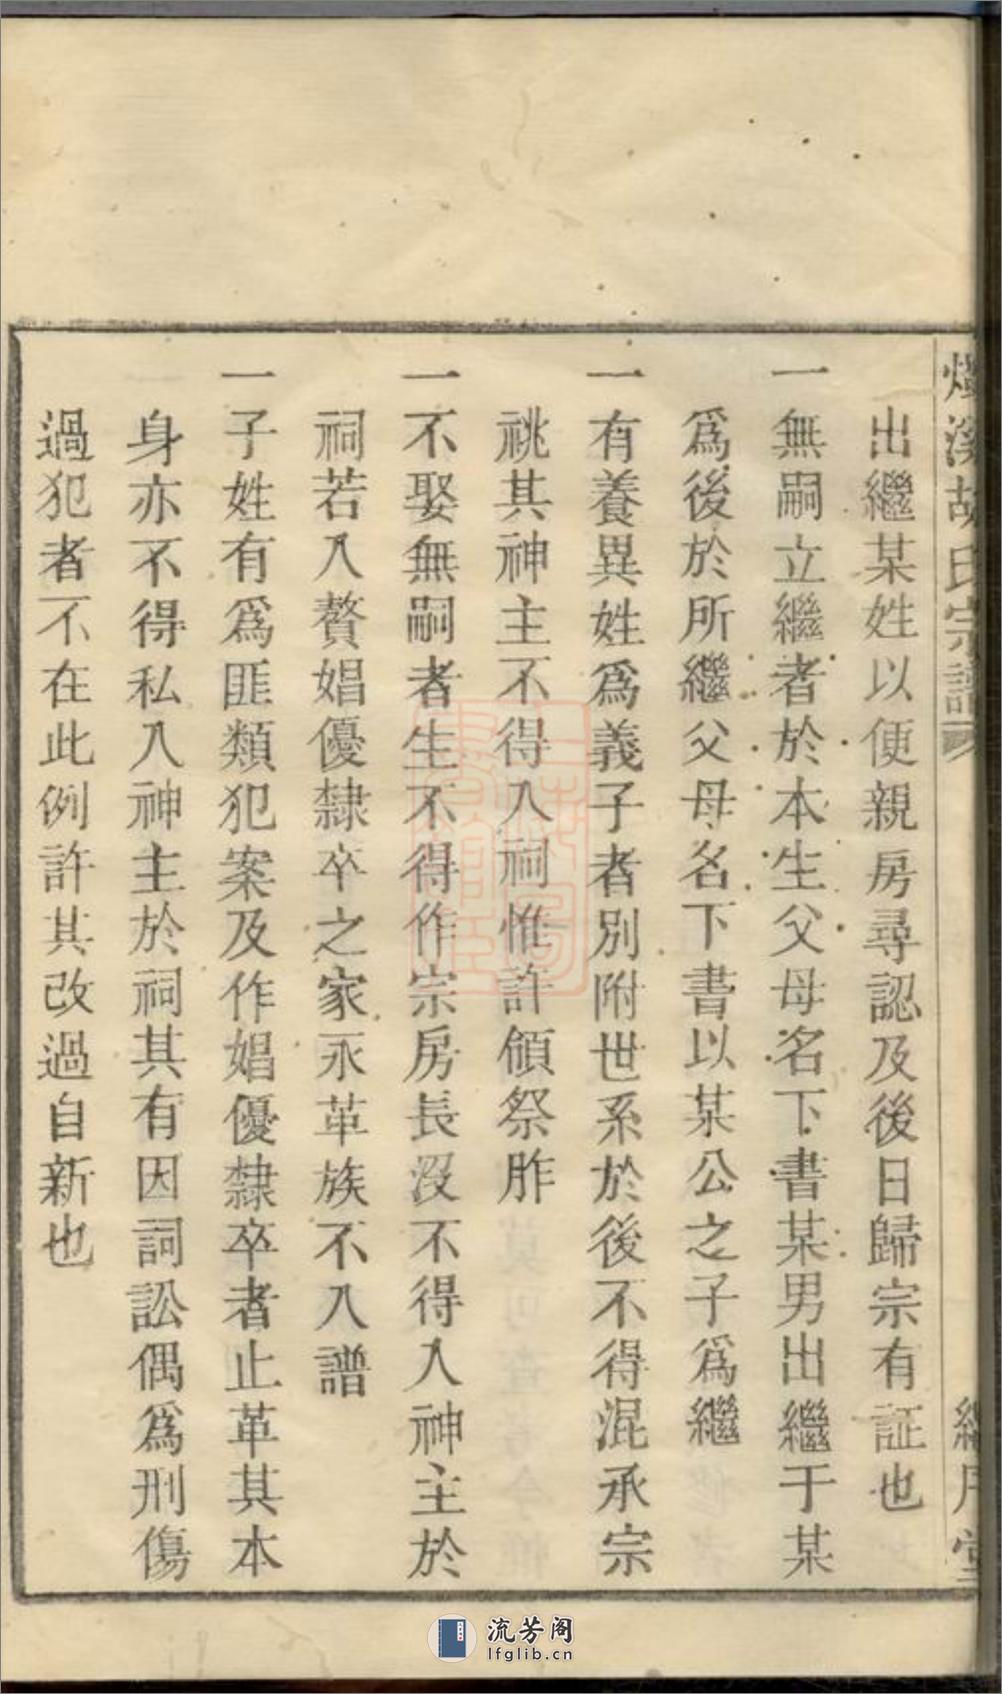 胡氏宗譜
出繼某姓以便親房尋認及後日歸宗有証也
一無嗣立繼者於本生父母名下書某男出繼于某
爲後於所繼父母名下書以某公之子爲繼
一有養異姓爲義子者別附世系於後不得混承宗
祧其神主不得入祠惟許頒祭胙
一不娶無嗣者生不得作宗房長沒不得入神主於
祠若入贅娼優隸卒之家永革族不入譜
一子姓有爲匪類犯案及作娼優隸卒者止革其本
身亦不得私入神主於祠其有因詞訟偶爲刑傷
過犯者不在此例許其改過自新也
流芳阁
lfglib.cn